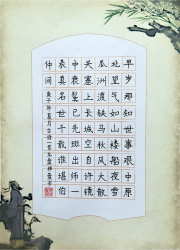 早岁那知世事艰中原
北望气如山楼船夜雪
瓜洲渡铁马秋风大散
关塞上长城空自许镜
中衰鬓已先斑出师一
表真名世千载谁堪伯
仲间
庚子年夏月古诗一首